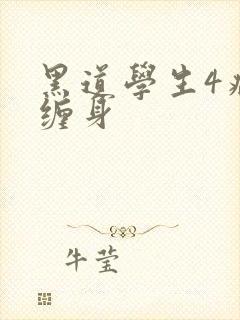 黑道學生4
缠身
牛莹